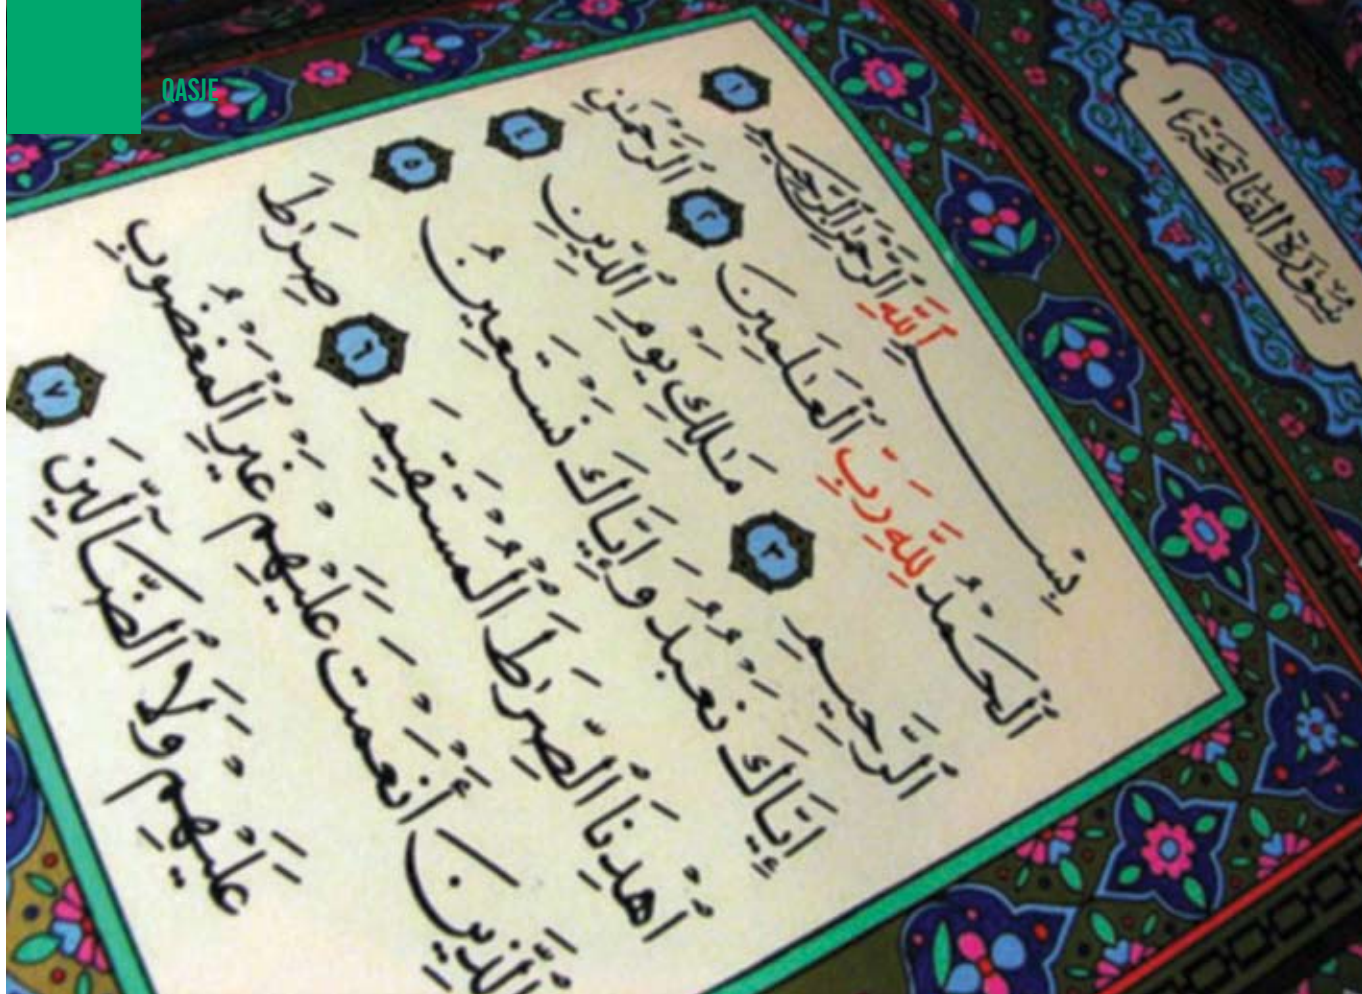 QASJE
سُورَةُ الْفَاتِحَةِ ١
بِسْمِ ٱللَّهِ ٱلرَّحْمَٰنِ ٱلرَّحِيمِ ١
ٱلْحَمْدُ لِلَّهِ رَبِّ ٱلْعَٰلَمِينَ ٢ ٱلرَّحْمَٰنِ
ٱلرَّحِيمِ ٣ مَٰلِكِ يَوْمِ ٱلدِّينِ ٤
إِيَّاكَ نَعْبُدُ وَإِيَّاكَ نَسْتَعِينُ ٥
ٱهْدِنَا ٱلصِّرَٰطَ ٱلْمُسْتَقِيمَ ٦ صِرَٰطَ
ٱلَّذِينَ أَنْعَمْتَ عَلَيْهِمْ غَيْرِ ٱلْمَغْضُوبِ
عَلَيْهِمْ وَلَا ٱلضَّآلِّينَ ٧